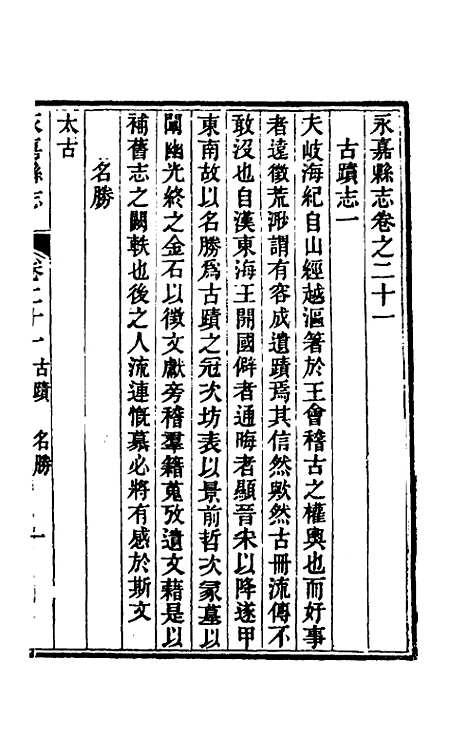 永嘉縣志卷之二十一
古蹟志一
夫岐海紀自山經越漚箸於王會稽古之權輿也而好事
者遠徵荒渺謂有容成遺蹟焉其信然歟然古冊流傳不
敢沒也自漢東海王開國僻者通晦者顯晉宋以降遂甲
東南故以名勝爲古蹟之冠次坊表以景前哲次冢墓以
闡幽光終之金石以徵文獻旁稽羣籍蒐攷遺文藉是以
補舊志之闕軼也後之人流連慨慕必將有感於斯文
名勝
太古
永嘉縣志 卷之二十一古蹟 名勝 一